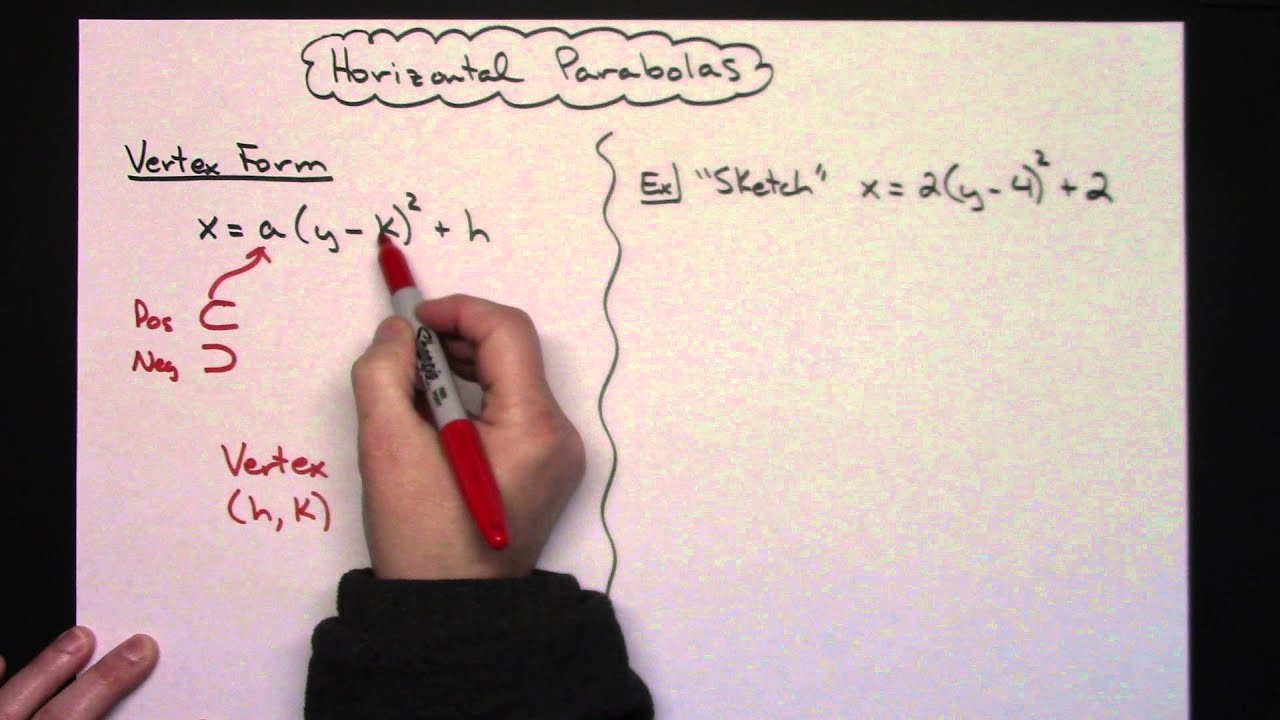 Horizontal Parabolas
Vertex Form
x = a(y - k)² + h
Pos
Neg
Vertex
(h, k)
Ex "Sketch" x = 2(y - 4)² + 2
Sharpie